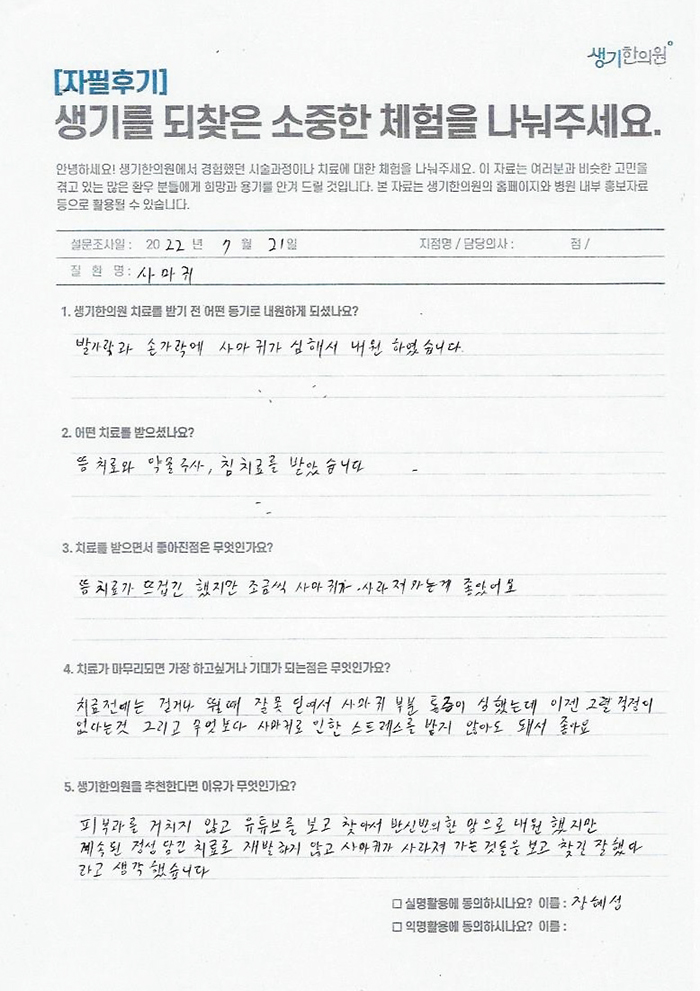 생기한의원
[자필후기]
생기를 되찾은 소중한 체험을 나눠주세요.
안녕하세요! 생기한의원에서 경험했던 시술과정이나 치료에 대한 체험을 나눠주세요. 이 자료는 여러분과 비슷한 고민을
겪고 있는 많은 환우 분들에게 희망과 용기를 안겨 드릴 것입니다. 본 자료는 생기한의원의 홈페이지와 병원 내부 홍보자료
등으로 활용될 수 있습니다.
설문조사일 : 2022 년 7 월 21일 지점명 / 담당의사 : 점 /
질 환 명 : 사마귀
1. 생기한의원 치료를 받기 전 어떤 동기로 내원하게 되셨나요?
발가락과 손가락에 사마귀가 심해서 내원 하였습니다.
2. 어떤 치료를 받으셨나요?
뜸 치료와 약침주사, 침 치료를 받았습니다
3. 치료를 받으면서 좋아진점은 무엇인가요?
뜸 치료가 뜨겁긴 했지만 조금씩 사마귀가 사라져가는게 좋았어요
4. 치료가 마무리되면 가장 하고싶거나 기대가 되는점은 무엇인가요?
치료전에는 걷거나 뛸때 잘못 딛여서 사마귀 부분 통증이 심했는데 이젠 그럴 걱정이
없다는것 그리고 무엇보다 사마귀로 인한 스트레스를 받지 않아도 돼서 좋아요
5. 생기한의원을 추천한다면 이유가 무엇인가요?
피부과를 거치지 않고 유튜브를 보고 찾아서 반신반의한 맘으로 내원 했지만
계속된 정성 담긴 치료로 재발하지 않고 사마귀가 사라져 가는 것들을 보고 찾긴 잘했다
라고 생각했습니다
□ 실명활용에 동의하시나요? 이름 : 장혜성
□ 익명활용에 동의하시나요? 이름 :